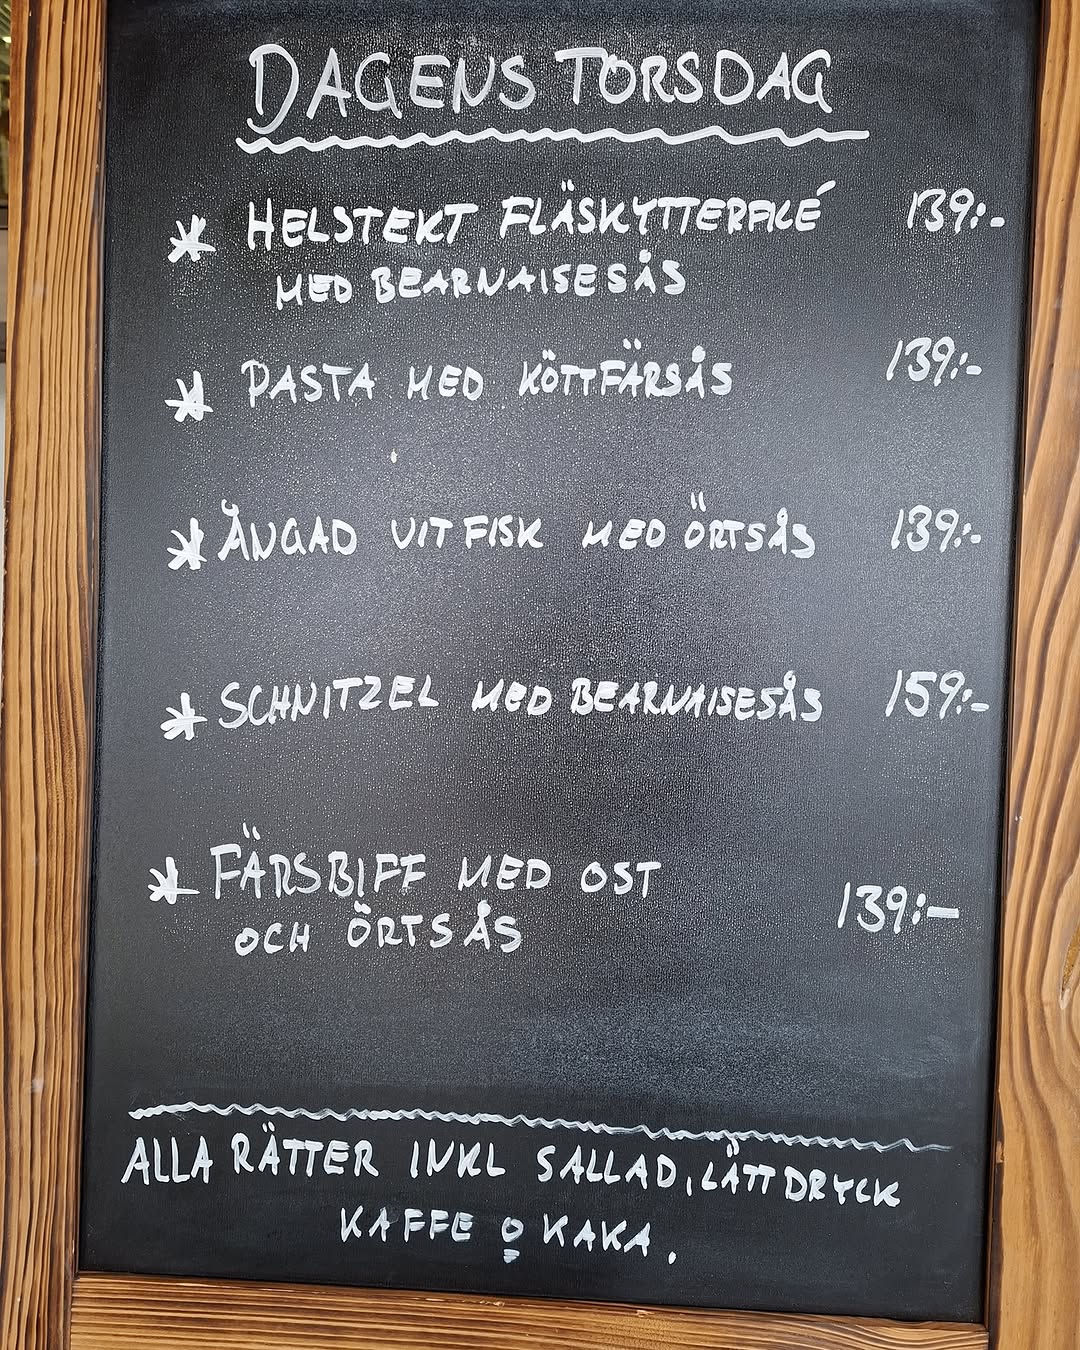 DAGENS TORSDAG
* HELSTEKT FLÄSKYTTERFILÉ 139:-
MED BEARNAISESÅS
* PASTA MED KÖTTFÄRSÅS 139:-
* ÅNGAD VIT FISK MED ÖRTSÅS 139:-
* SCHNITZEL MED BEARNAISESÅS 159:-
* FÄRSBIFF MED OST
OCH ÖRTSÅS 139:-
ALLA RÄTTER INKL SALLAD, LÄTTDRYCK
KAFFE o KAKA.